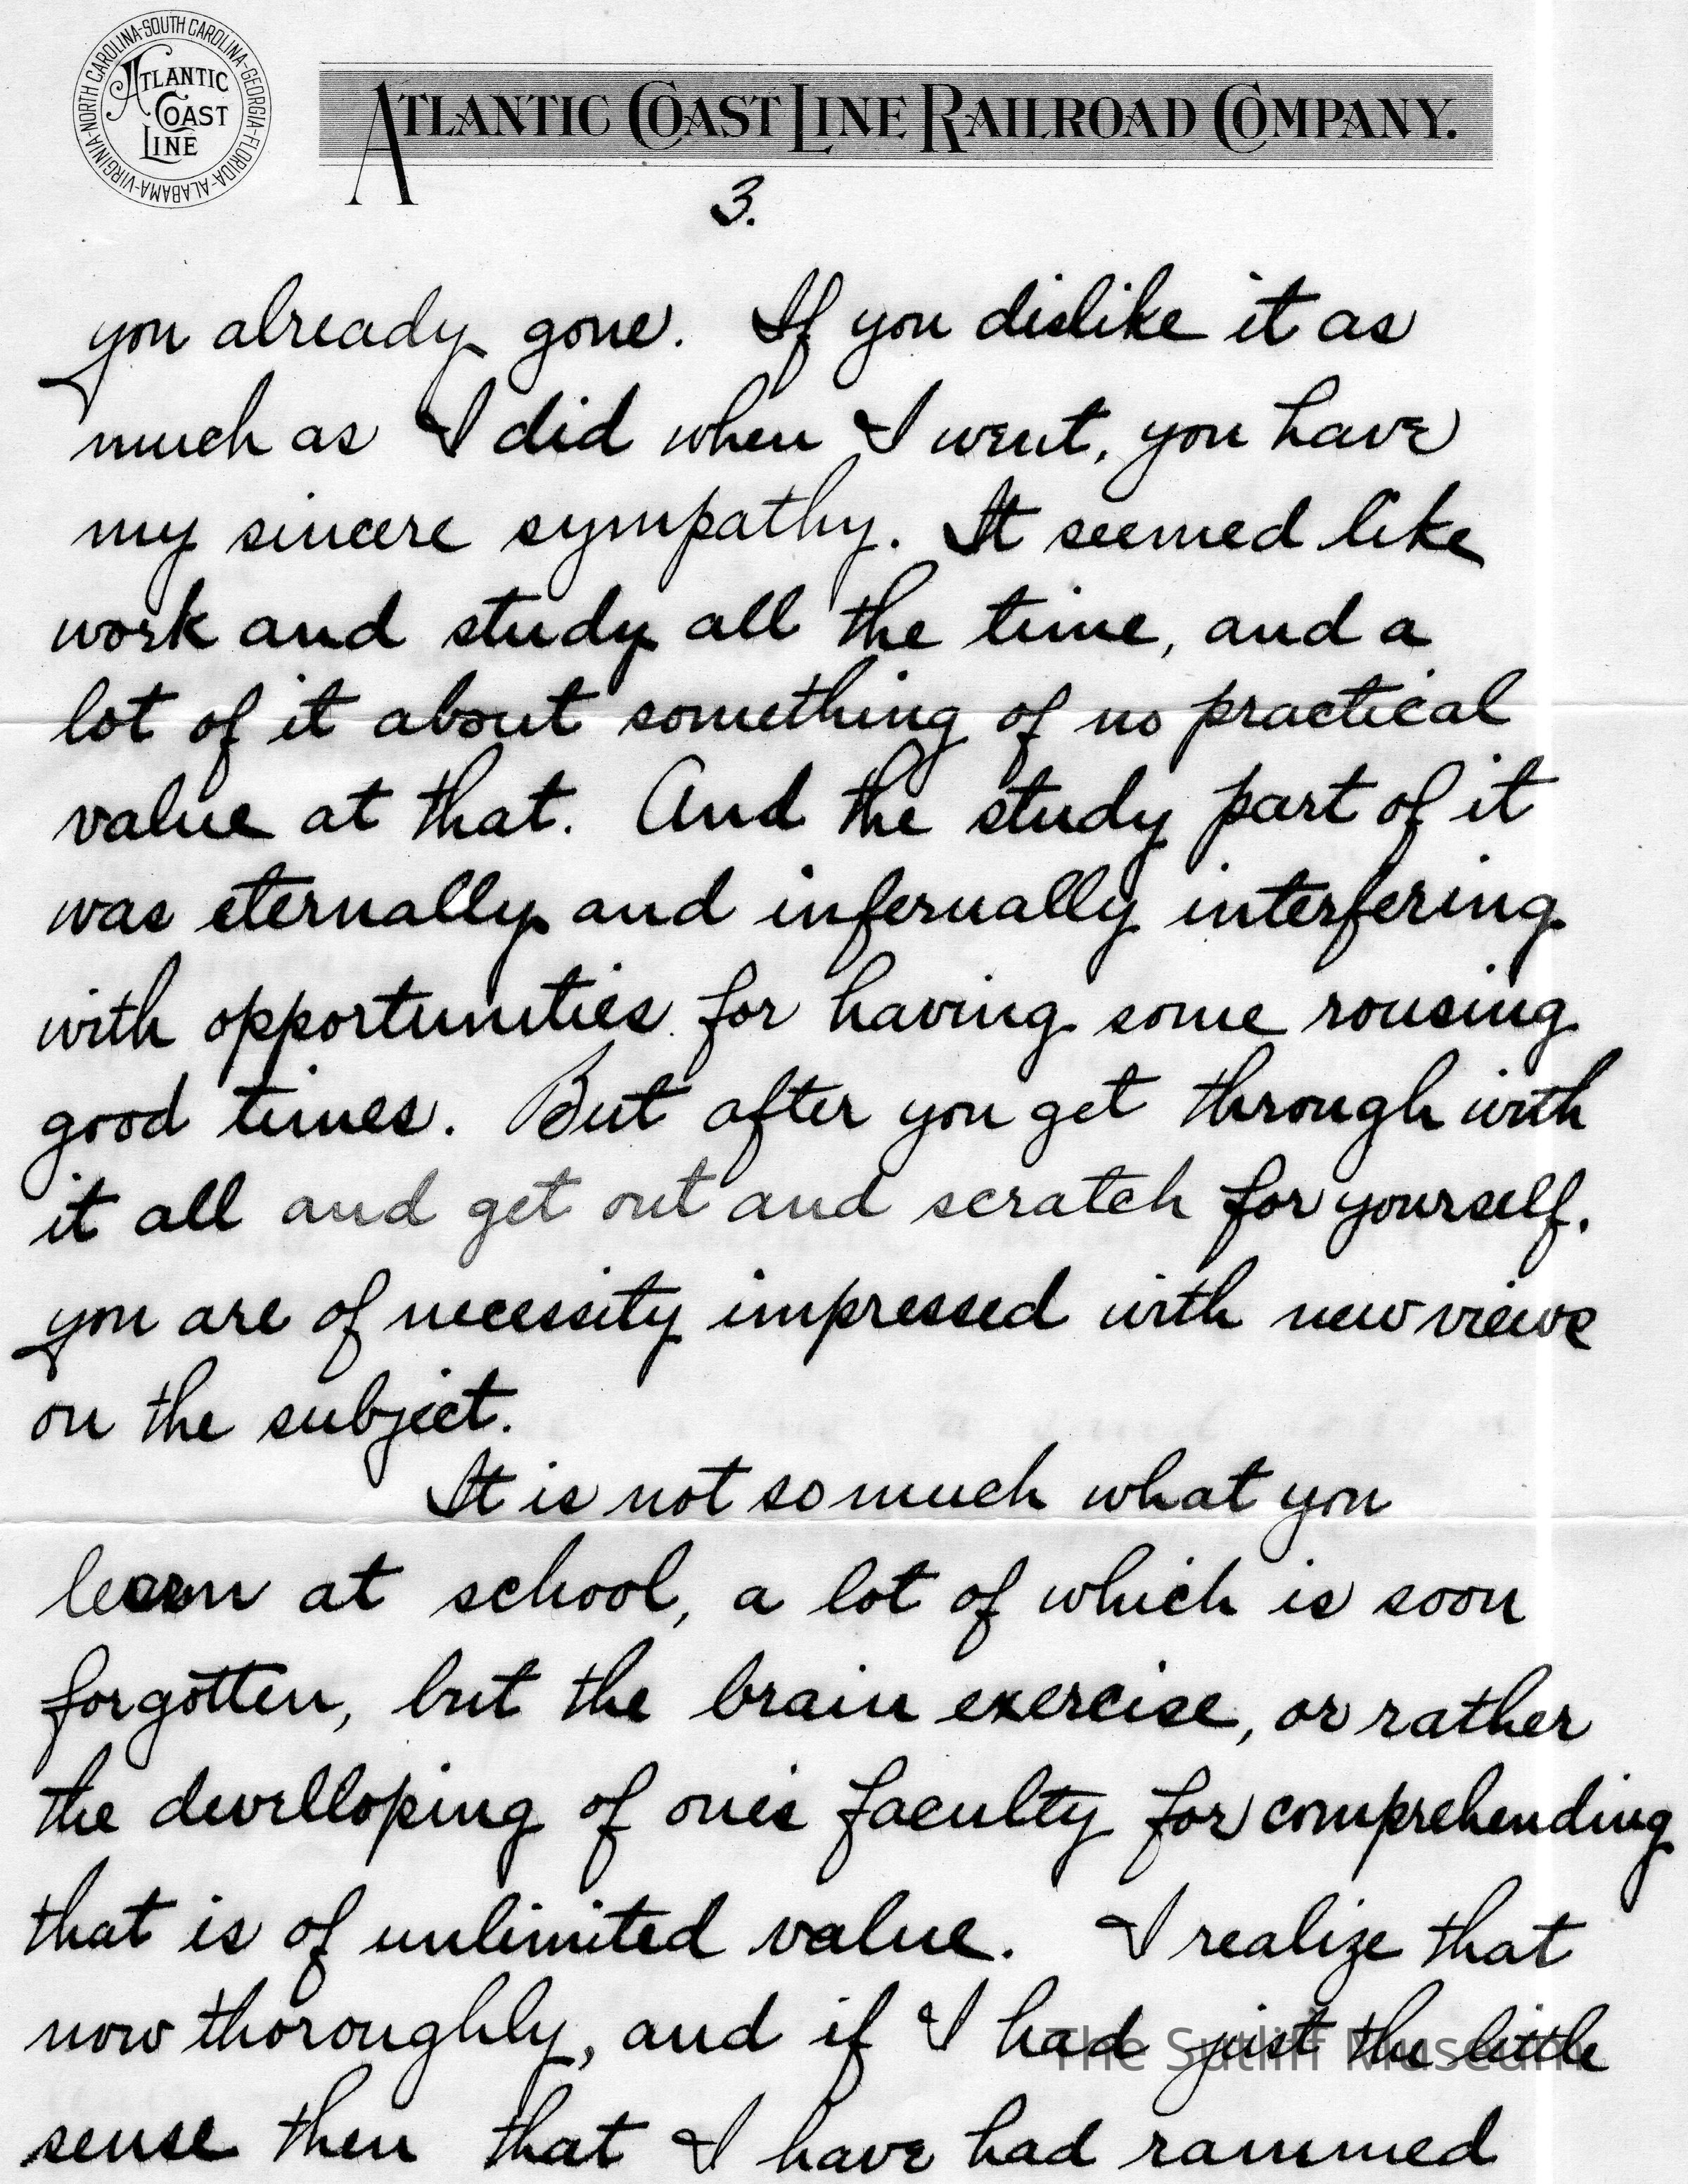 VIRGINIA-NORTH CAROLINA-SOUTH CAROLINA-GEORGIA-FLORIDA-ALABAMA-
ATLANTIC
COAST
LINE
ATLANTIC COAST LINE RAILROAD COMPANY.
3.
you already gone. If you dislike it as
much as I did when I went, you have
my sincere sympathy. It seemed like
work and study all the time, and a
lot of it about something of no practical
value at that. And the study part of it
was eternally and infernally interfering
with opportunities for having some rousing
good times. But after you get through with
it all and get out and scratch for yourself.
you are of necessity impressed with new views
on the subject.
It is not so much what you
learn at school, a lot of which is soon
forgotten, but the brain exercise, or rather
the develloping of one's faculty for comprehending
that is of unlimited value. I realize that
now thoroughly, and if I had just the little
The Sutliff Museum
sense then that I have had rammed